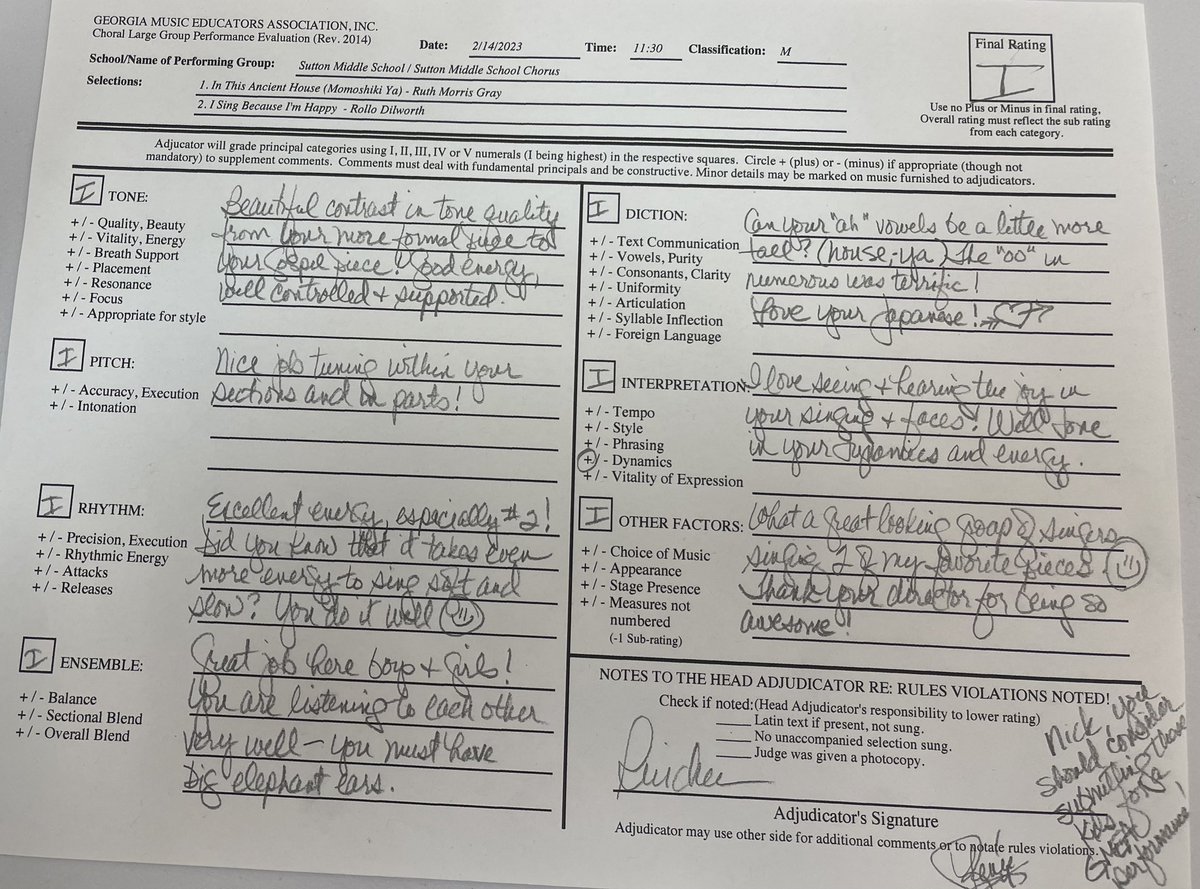 GEORGIA MUSIC EDUCATORS ASSOCIATION, INC.
Choral Large Group Performance Evaluation (Rev. 2014)
Date: 2/14/2023 Time: 11:30 Classification: M
School/Name of Performing Group: Sutton Middle School / Sutton Middle School Chorus
Selections: 1. In This Ancient House (Momoshiki Ya) - Ruth Morris Gray
2. I Sing Because I'm Happy - Rollo Dilworth
Final Rating
I
Use no Plus or Minus in final rating,
Overall rating must reflect the sub rating
from each category.
Adjucator will grade principal categories using I, II, III, IV or V numerals (I being highest) in the respective squares. Circle + (plus) or - (minus) if appropriate (though not
mandatory) to supplement comments. Comments must deal with fundamental principals and be constructive. Minor details may be marked on music furnished to adjudicators.
I TONE:
+ / - Quality, Beauty
+ / - Vitality, Energy
+ / - Breath Support
+ / - Placement
+ / - Resonance
+ / - Focus
+ / - Appropriate for style
Beautiful contrast in tone quality
from your more formal piece to
your Gospel piece! Good energy,
well controlled + supported.
I PITCH:
+ / - Accuracy, Execution
+ / - Intonation
Nice job tuning within your
sections and in parts!
I RHYTHM:
+ / - Precision, Execution
+ / - Rhythmic Energy
+ / - Attacks
+ / - Releases
Excellent energy, especially #2!
Did you know that it takes even
more energy to sing soft and
slow? You do it well
I ENSEMBLE:
+ / - Balance
+ / - Sectional Blend
+ / - Overall Blend
Great job here boys + girls!
You are listening to each other
very well - you must have
big elephant ears.
I DICTION:
+ / - Text Communication
+ / - Vowels, Purity
+ / - Consonants, Clarity
+ / - Uniformity
+ / - Articulation
+ / - Syllable Inflection
+ / - Foreign Language
Can your "ah" vowels be a little more
tall? (house, ya) The "oo" in
numerous was terrific!
Love your Japanese!
I INTERPRETATION:
+ / - Tempo
+ / - Style
+ / - Phrasing
+ / - Dynamics
+ / - Vitality of Expression
I love seeing + hearing the joy in
your singing + faces! Well done
in your dynamics and energy.
I OTHER FACTORS:
+ / - Choice of Music
+ / - Appearance
+ / - Stage Presence
+ / - Measures not
numbered
(-1 Sub-rating)
What a great looking group of singers
singing 2 of my favorite pieces
Thank your director for being so
awesome!
NOTES TO THE HEAD ADJUDICATOR RE: RULES VIOLATIONS NOTED!
Check if noted:(Head Adjudicator's responsibility to lower rating)
Latin text if present, not sung.
No unaccompanied selection sung.
Judge was given a photocopy.
Adjudicator's Signature
Adjudicator may use other side for additional comments or to notate rules violations.
Nick, you
should consider
submitting these
kids for a
GMEA
performance!